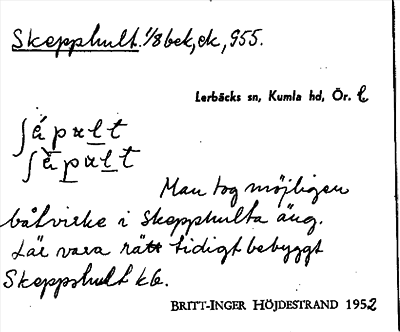 Skepphult. 1/8 bek, ek, 955.
Lerbäcks sn, Kumla hd, Ör. l
ʃèpult
ʃèpult
Man tog möjligen
båtvirke i Skepphulta äng.
Lär vara rätt tidigt bebyggt
Skeppshult kb.
BRITT-INGER HÖJDESTRAND 1952